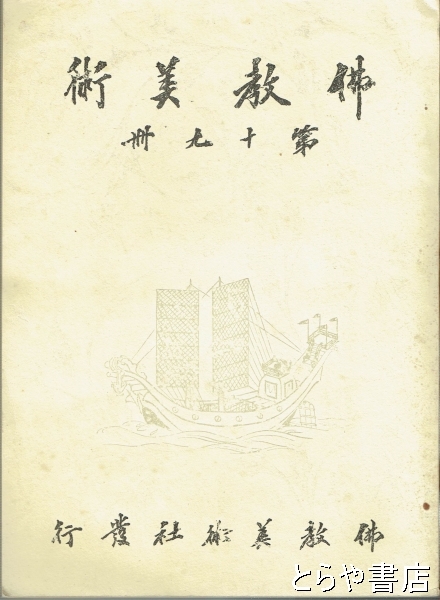 佛教美術
第十九冊
佛教美術社發行
とらや書店